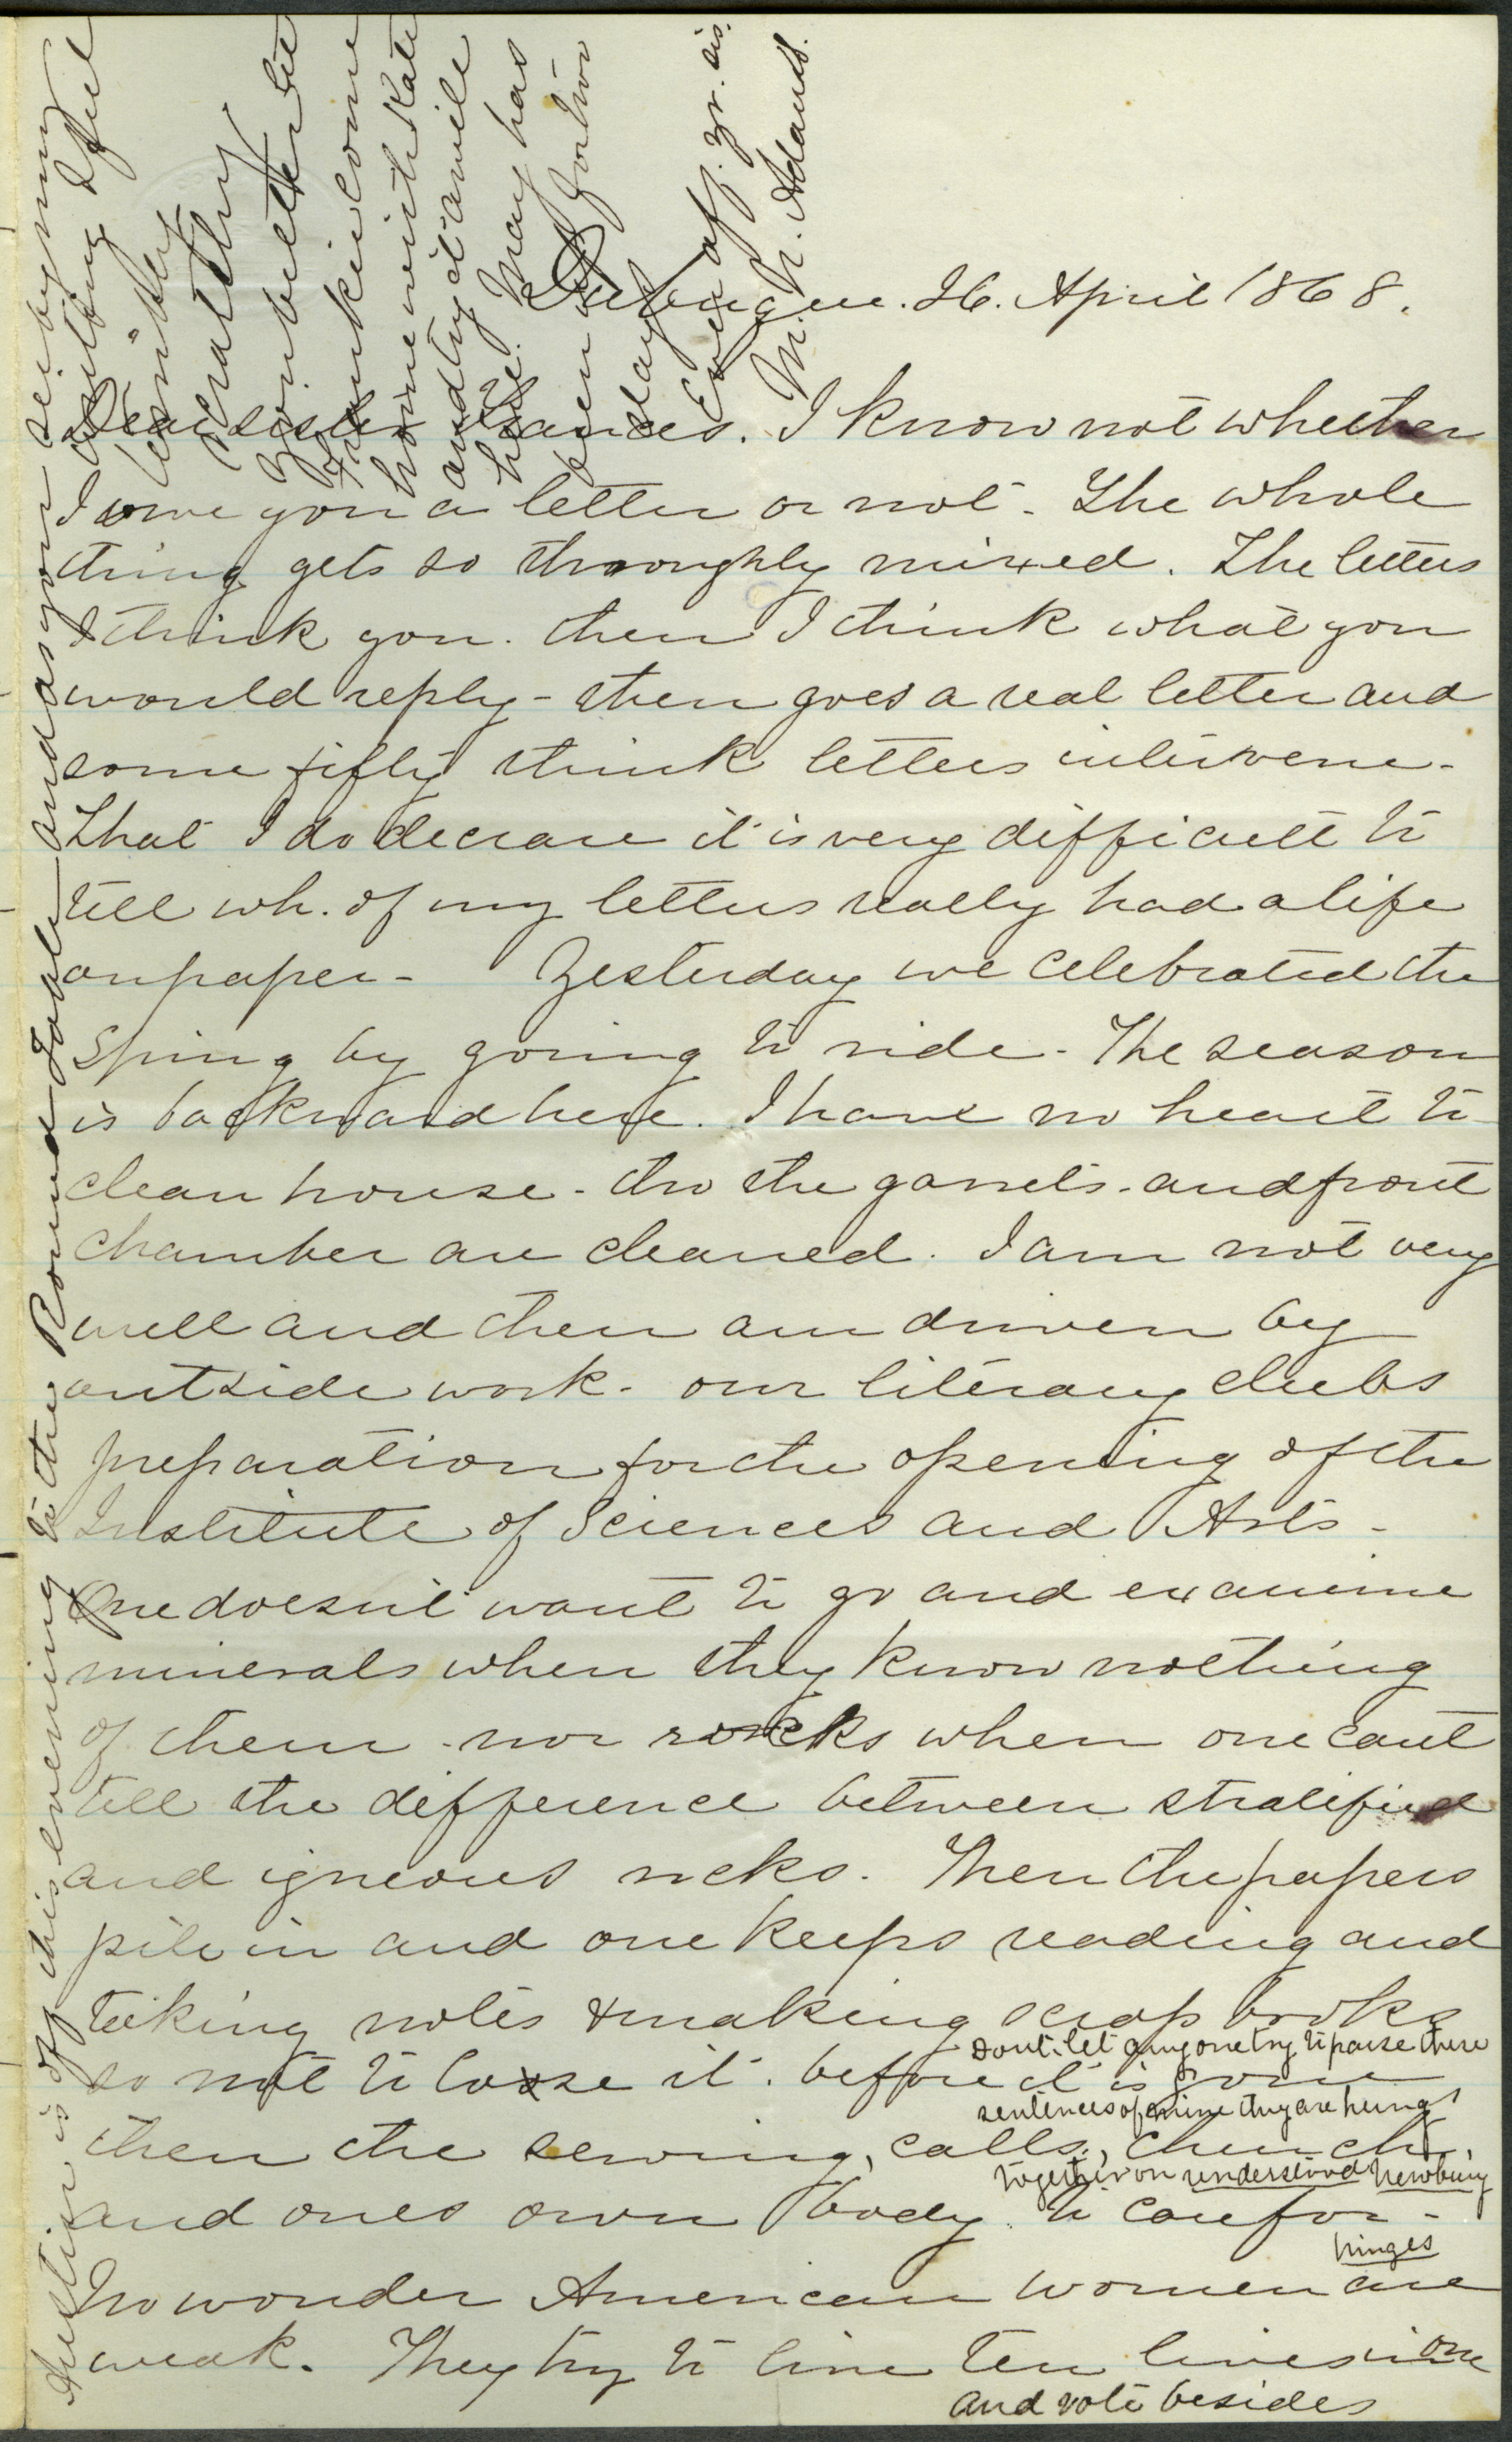 Dubuque. 26. April 1868.
Dear sister Frances. I know not whether
I owe you a letter or not. The whole
thing gets so thoroughly mixed. The letters
I think you. then I think what you
would reply - then goes a real letter and
some fifty think letters intervene -
That I do declare it is very difficult to
tell wh. of my letters really had a life
on paper - Yesterday we celebrated the
Spring by going to ride - The season
is backward here. I have no heart to
clean house - tho the garrets - and front
chamber are cleaned. I am not very
well and then am driven by
outside work - our literary clubs
preparation for the opening of the
Institute of Sciences and Arts -
One doesn't want to go and examine
minerals when they know nothing
of them - nor rocks when one cant
tell the difference between stratified
and igneous rocks. Then the papers
pile in and one keeps reading and
taking notes & making scrap books
so not to loose it. before it is gone
then the sewing, calls, church,
and ones own body to care for -
No wonder American women are
weak. They try to live ten lives in one
and vote besides
dont let any one try to parse these
sentences of mine they are hung
together on understood new being
hinges
Austin is off this evening to the Round Table and as you see by my
writing I feel
you better let
Frankie come
home with Kate
and try it a while
here. May has
been for two
days Ever aff. yr. sis.
M. N. Adams.